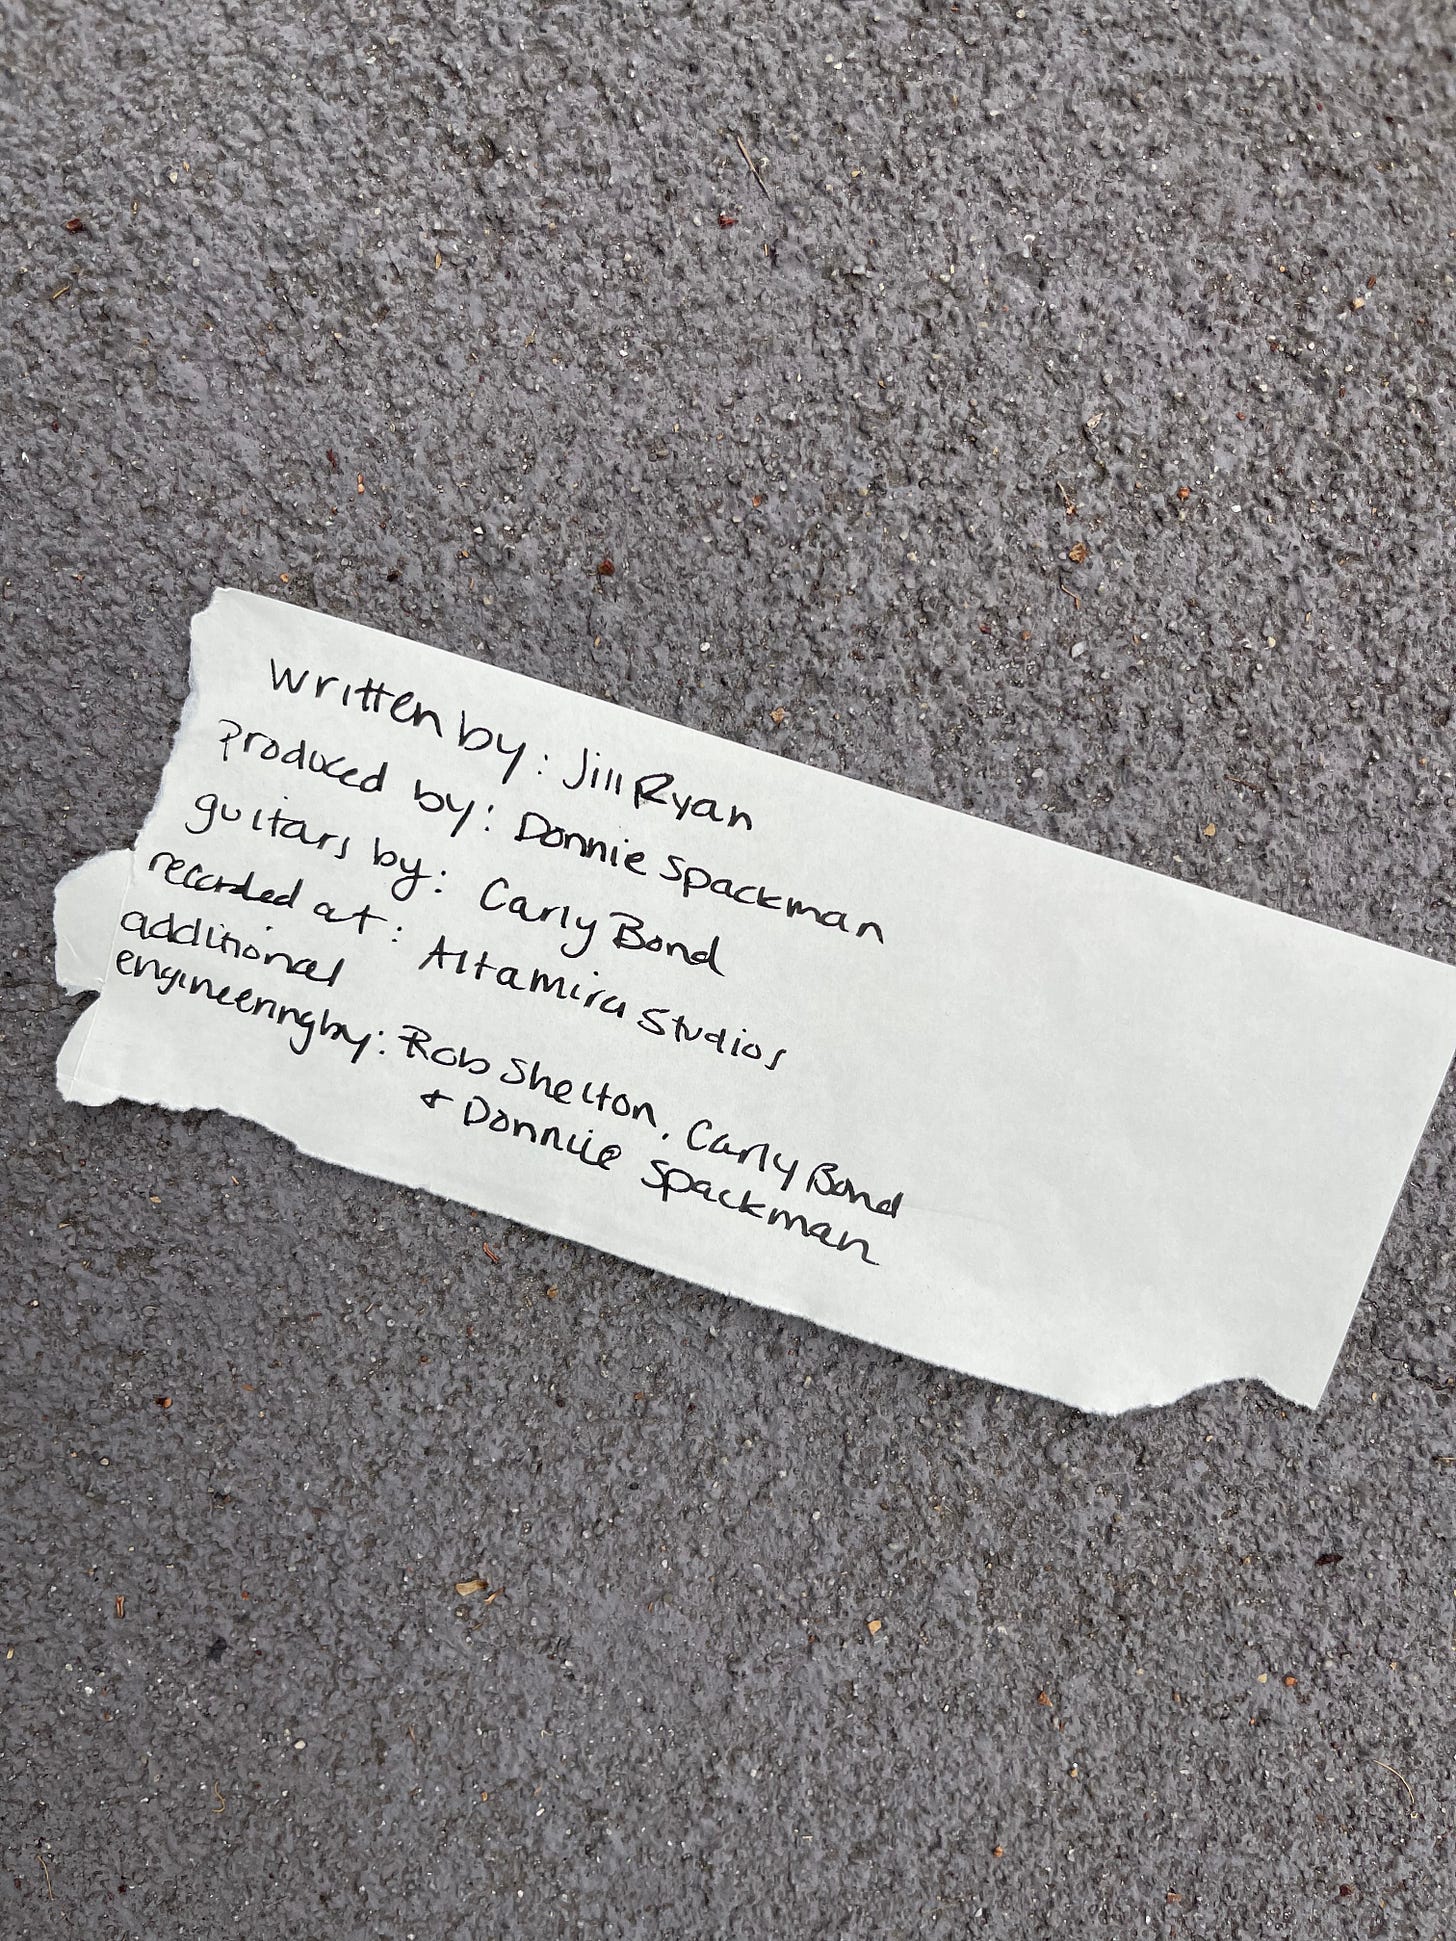 written by: Jill Ryan
produced by: Donnie Spackman
guitars by: Carly Bond
recorded at: Altamira Studios
additional
engineering by: Rob Shelton, Carly Bond
& Donniie Spackman